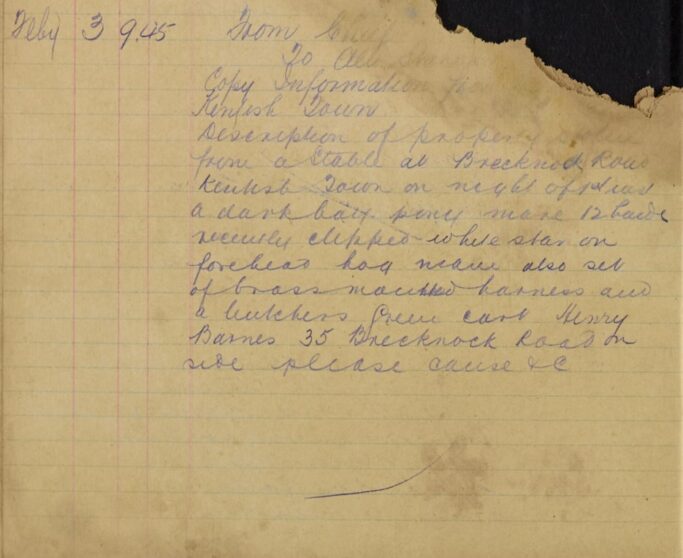 Feby 3 9.45 From Chief
To All
Copy Information from
Kentish Town
Description of property stolen
from a Stable at Brecknock Road
Kentish Town on night of
a dark bay pony mare 12 hands
recently clipped white star on
forehead hog mane also set
of brass mounted harness and
a butchers Green cart Henry
Barnes 35 Brecknock Road on
side please cause &c